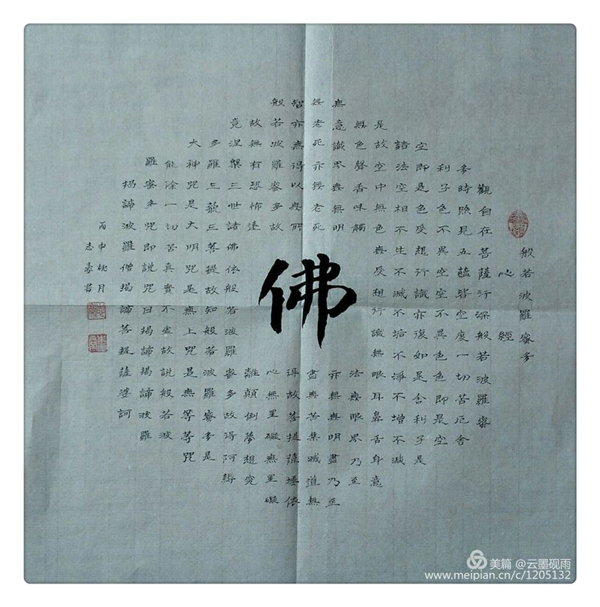 般若波羅蜜多
心經
觀自在菩薩行深般若波羅蜜
多時照見五蘊皆空度一切苦厄舍
利子色不異空空不異色色即是空
空即是色受想行識亦復如是舍利子是
諸法空相不生不滅不垢不淨不增不減
是故空中無色無受想行識無眼耳鼻舌身意
無色聲香味觸
法無眼界乃至
無意識界無無明
亦無無明盡乃至
無老死亦無老死
盡無苦集滅道無
智亦無得以無所
得故菩提薩埵依
般若波羅蜜多故
心無罣礙無罣礙
故無有恐怖遠
離顛倒夢想究
竟涅槃三世諸佛依般若波羅蜜多故得阿耨
多羅三藐三菩提故知般若波羅蜜多是
大神咒是大明咒是無上咒是無等等咒
能除一切苦真實不虛故說般若波
羅蜜多咒即說咒曰揭諦揭諦波羅
揭諦波羅僧揭諦菩提薩婆訶
丙申秋月
佛
美篇 @云墨砚雨
www.meipian.cn/c/1205132